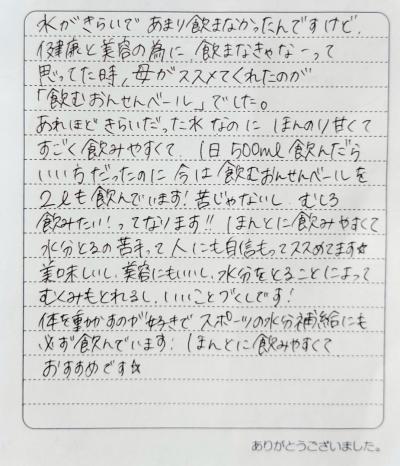 水がきらいで あまり飲まなかったんですけど、
健康と美容の為に、飲まなきゃなーって
思ってた時、母がススメてくれたのが
「飲むおんせんベール」でした。
あれほどきらいだった水なのに ほんのり甘くて
すごく飲みやすくて、1日500ml飲んだら
いい方だったのに 今は飲むおんせんベールを
2lも飲んでいます!苦じゃないし、むしろ
飲みたい!ってなります!! ほんとに飲みやすくて
水分とるの苦手って人にも自信もってススめてます☆
美味しいし、美容にもいいし、水分をとることによって
むくみもとれるし、いいことづくしです!
体を動かすのが好きで スポーツの水分補給にも
必ず飲んでいます! ほんとに飲みやすくて
おすすめです☆
ありがとうございました。